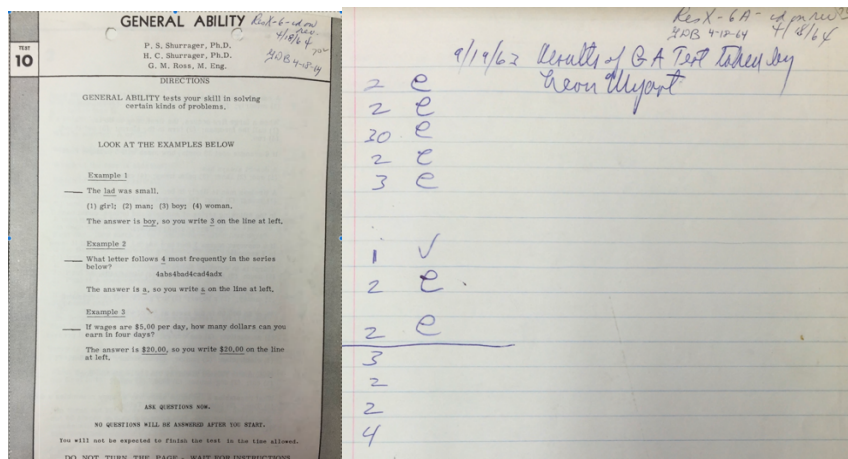 GENERAL ABILITY
TEST
10
P. S. Shurrager, Ph.D.
H. C. Shurrager, Ph.D.
G. M. Ross, M. Eng.
4/18/64
4-18-64
DIRECTIONS
GENERAL ABILITY tests your skill in solving
certain kinds of problems.
LOOK AT THE EXAMPLES BELOW
Example 1
The lad was small.
(1) girl; (2) man; (3) boy; (4) woman.
The answer is boy, so you write 3 on the line at left.
Example 2
What letter follows 4 most frequently in the series
below?
4abs4had4cad4adx
The answer is a, so you write a on the line at left.
Example 3
If wages are $5.00 per day, how many dollars can you
earn in four days?
The answer is $20.00, so you write $20.00 on the line
at left.
ASK QUESTIONS NOW.
NO QUESTIONS WILL BE ANSWERED AFTER YOU START.
You will not be expected to finish the test in the time allowed.
DO NOT TURN THE PAGE - WAIT FOR INSTRUCTIONS
Res X-6A-
4-18-64 4/18/64
9/19/63 Results of GA Test taken by
Leon Myart
2 e
2 e
30 e
2 e
3 e
1 ✓
2 e
2 e
3
2
2
4